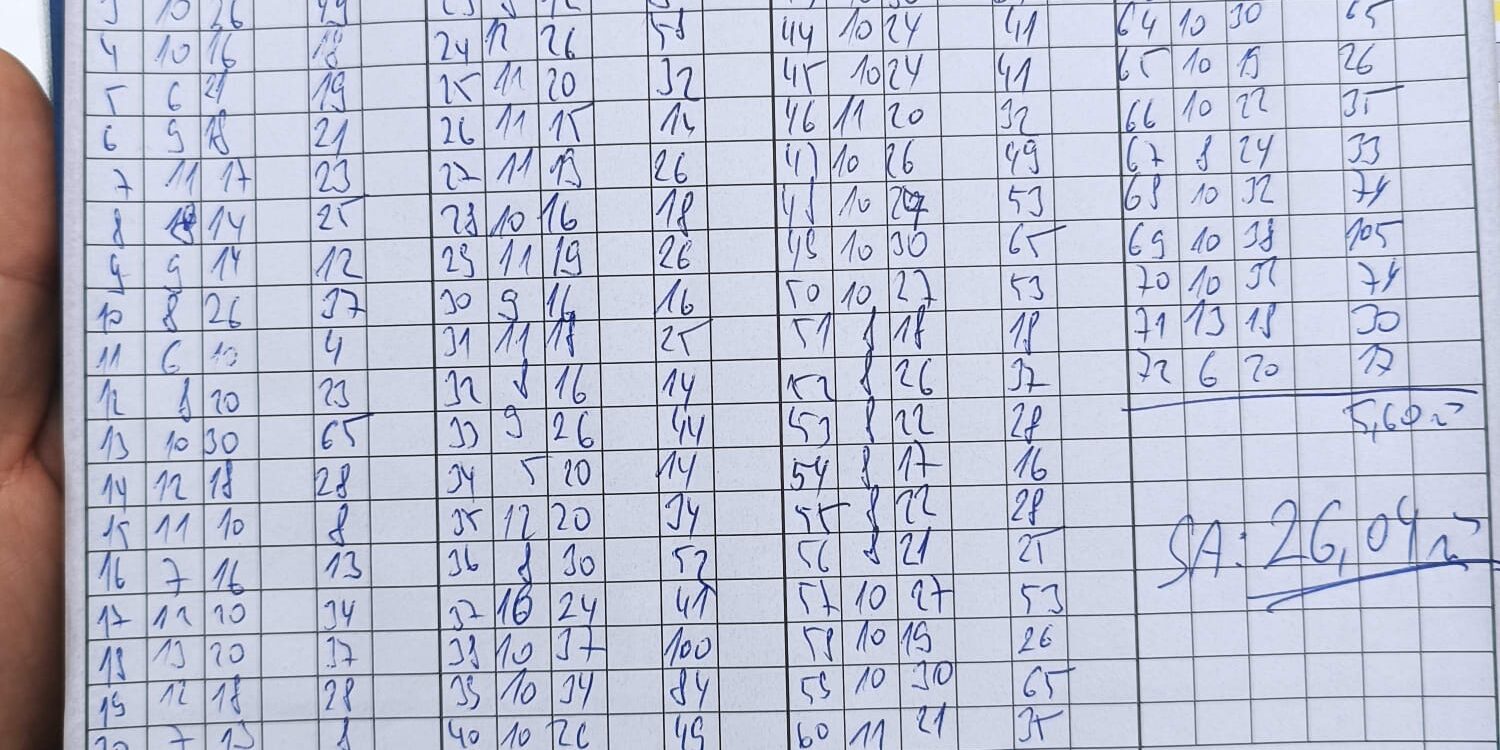 3 10 26 49
4 10 16 18 24 12 26 58 44 10 24 41 64 10 30 65
5 6 21 19 25 11 20 32 45 10 24 41 65 10 19 26
6 9 18 21 26 11 15 46 11 20 32 66 10 22 35
7 11 17 23 27 11 19 26 47 10 26 49 67 8 24 33
8 14 25 28 10 16 18 48 10 27 53 68 10 32 74
9 9 14 12 29 11 19 26 49 10 30 65 69 10 38 105
10 8 26 37 30 9 16 16 50 10 27 53 70 10 32 74
11 6 10 4 31 11 18 25 51 8 18 18 71 13 18 30
12 8 20 23 32 8 16 14 52 8 26 37 72 6 20 17
13 10 30 65 33 9 26 44 53 8 22 28 5,60 m³
14 12 18 28 34 5 20 14 54 8 17 16
15 11 10 8 35 12 20 34 55 8 22 28
16 7 16 13 36 8 30 52 56 8 21 25 SA: 26,04 m³
17 12 20 34 37 10 24 41 57 10 27 53
18 13 20 37 38 10 37 100 58 10 19 26
19 12 18 28 39 10 34 84 59 10 30 65
20 7 13 8 40 10 26 49 60 11 21 35